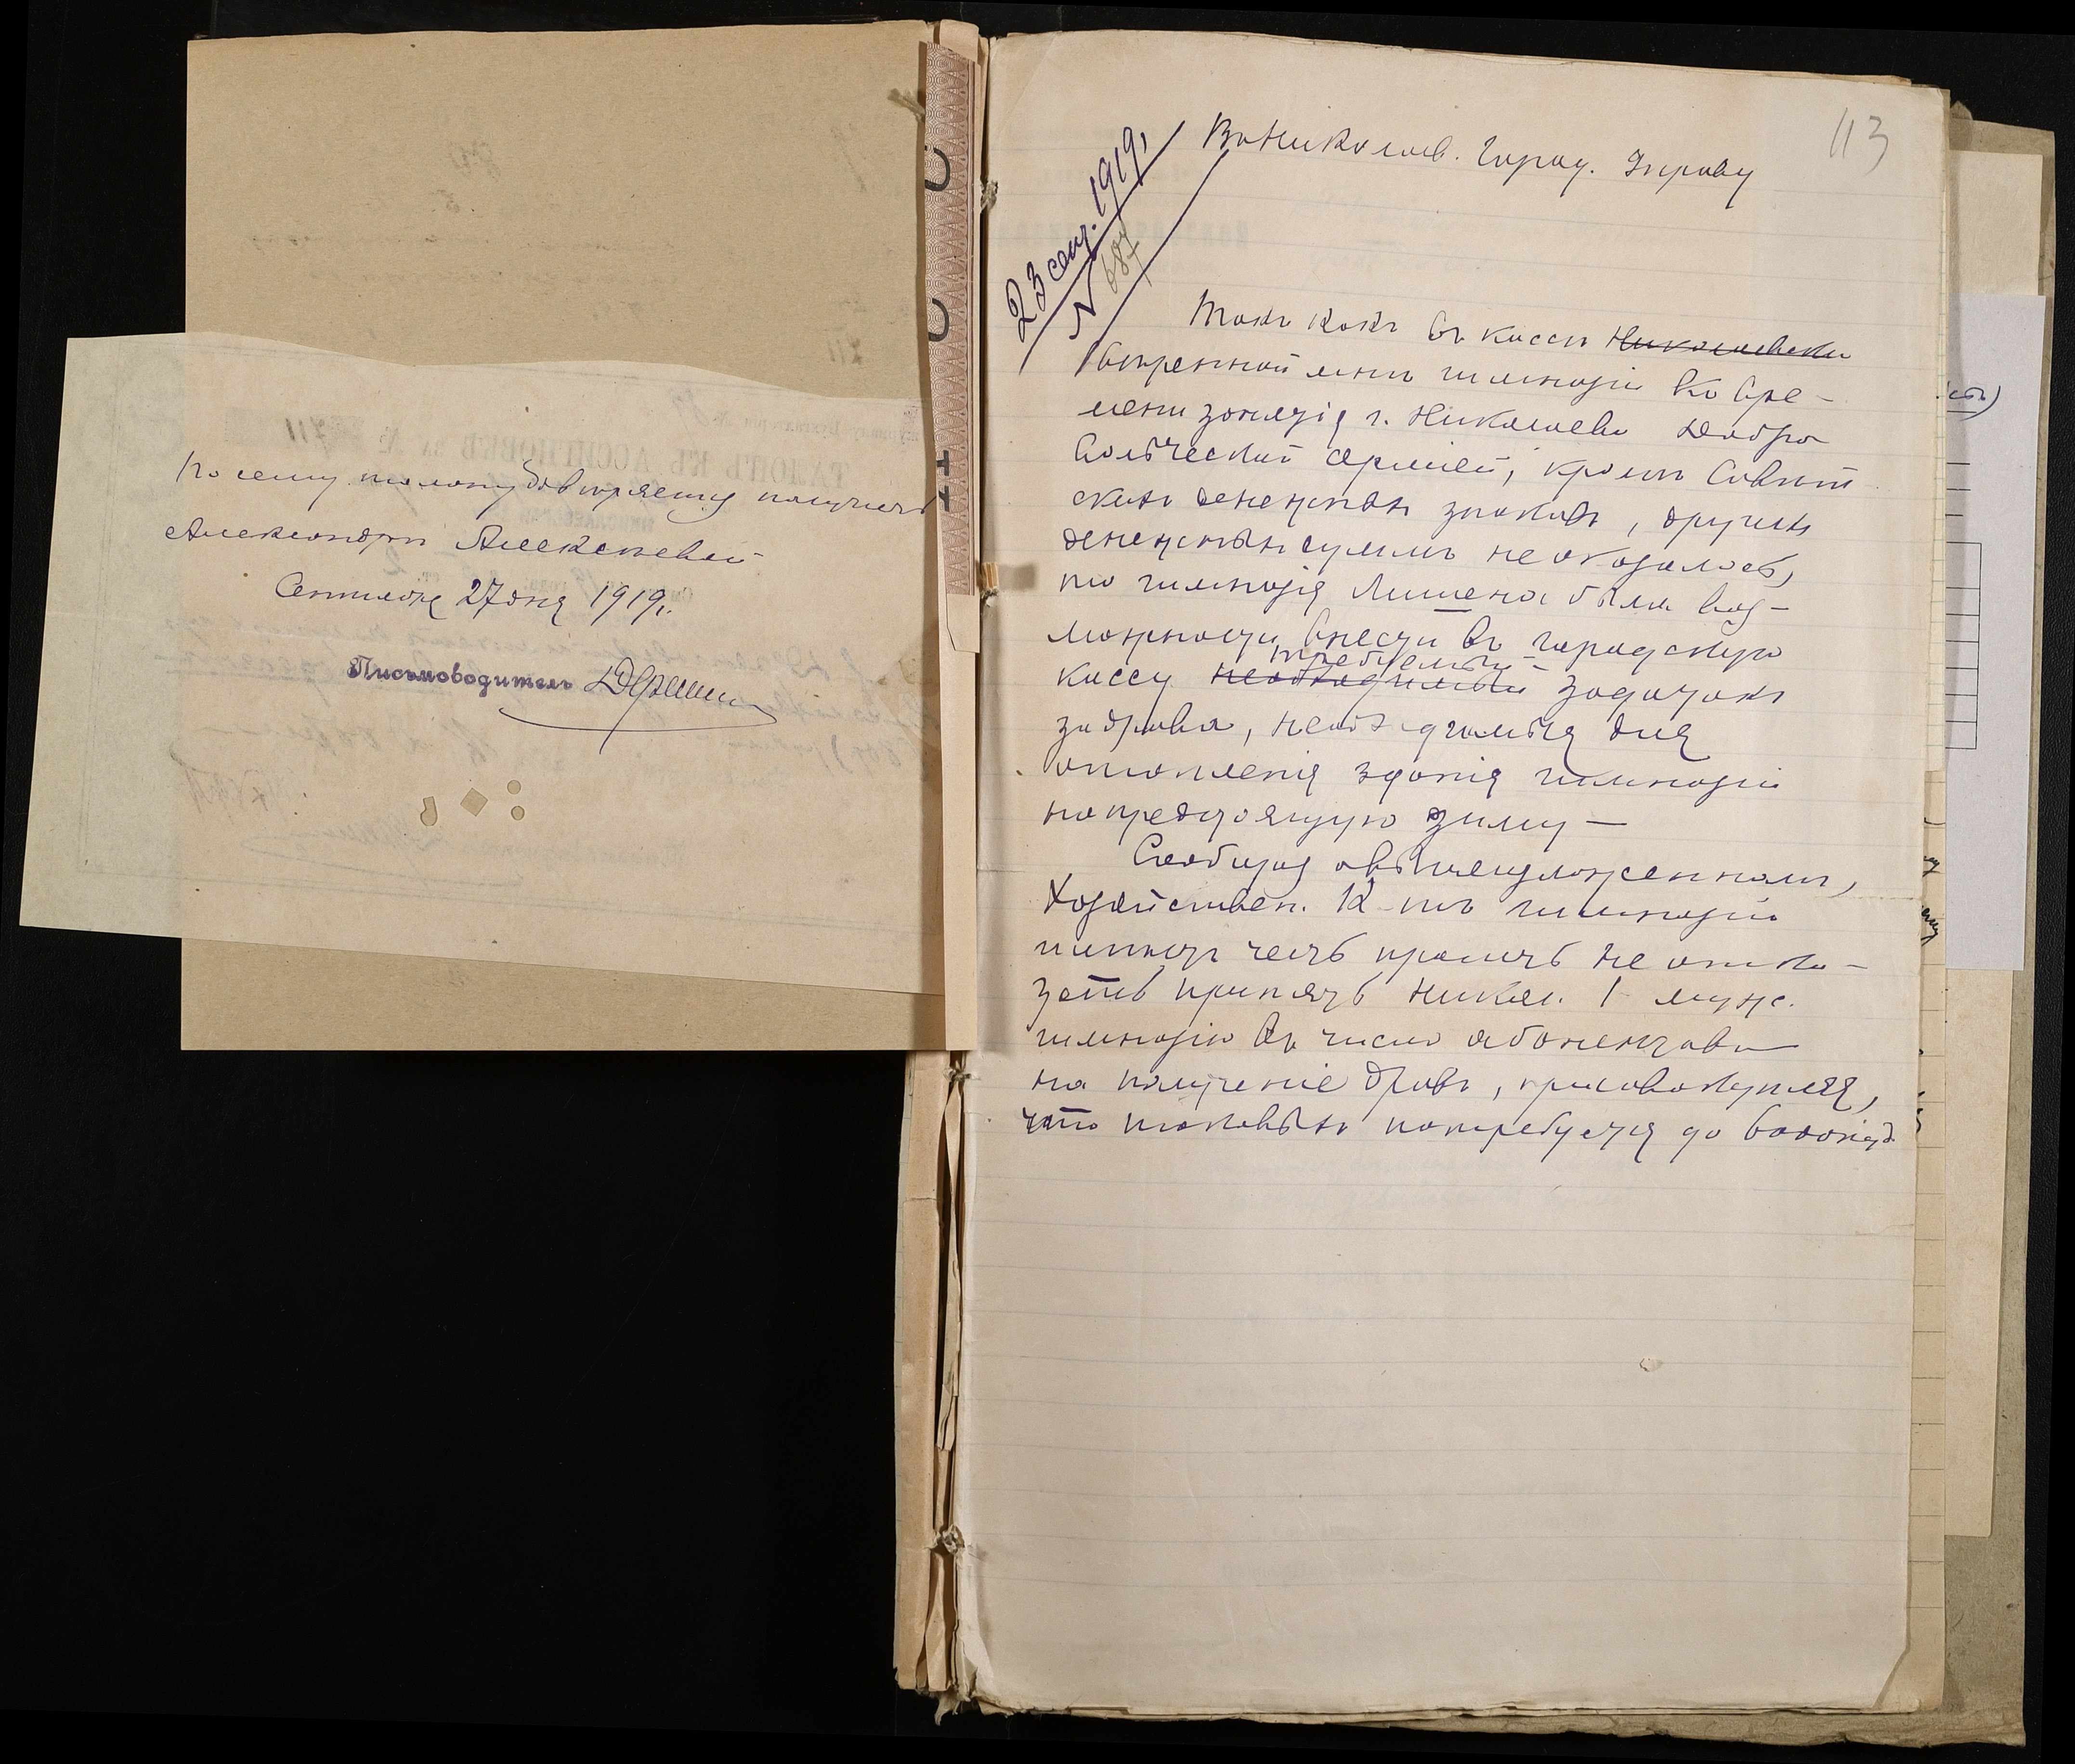 По сему талону довѣряется получить
Александрѣ Алексѣевой
Сентября 27 дня 1919 г.
Письмоводитель
113
23 сент. 1919 г.
№ 687
Въ Николаев. Город. Управу
Такъ какъ въ кассѣ Николаевской
ввѣренной мнѣ гимназіи ко вре-
мени занятія г. Николаева Добро
вольческой арміей, кромѣ совѣт-
скихъ денежныхъ знаковъ, другихъ
денежныхъ суммъ не оказалось,
то гимназія лишена была воз-
можности внести въ городскую
требуемый
кассу необходимый задатокъ
за дрова, необходимыя для
отопленія зданія гимназіи
на предстоящую зиму —
Сообщая о вышеизложенномъ,
Хозяйствен. К-тъ гимназіи
имѣетъ честь просить не отка-
зать принять Никол. 1 муж.
гимназію въ число абонентовъ
на полученіе дровъ, присовокупляя,
что таковыхъ потребуется до